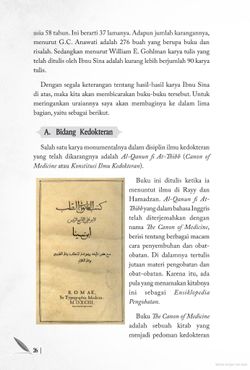 usia 58 tahun. Ini berarti 37 lamanya. Adapun jumlah karangannya,
menurut G.C. Anawati adalah 276 buah yang berupa buku dan
risalah. Sedangkan menurut William E. Gohlman karya tulis yang
telah ditulis oleh Ibnu Sina adalah kurang lebih berjumlah 90 karya
tulis.
Dengan segala keterangan tentang hasil-hasil karya Ibnu Sina
di atas, maka kita akan membicarakan buku-buku tersebut. Untuk
meringankan uraiannya saya akan membaginya ke dalam lima
bagian, yaitu sebagai berikut.
A. Bidang Kedokteran
Salah satu karya monumentalnya dalam disiplin ilmu kedokteran
yang telah dikarangnya adalah Al-Qanun fi At-Thibb (Canon of
Medicine atau Konstitusi Ilmu Kedokteran).
Buku ini ditulis ketika ia
menuntut ilmu di Rayy dan
Hamadzan. Al-Qanun fi At-
Thibb yang dalam bahasa Inggris
telah diterjemahkan dengan
nama The Canon of Medicine,
berisi tentang berbagai macam
cara penyembuhan dan obat-
obatan. Di dalamnya tertulis
jutaan materi pengobatan dan
obat-obatan. Karena itu, ada
pula yang menamakan kitabnya
ini sebagai Ensiklopedia
Pengobatan.
Buku The Canon of Medicine
adalah sebuah kitab yang
menjadi pedoman kedokteran
ابن سينا
ROMAE,
In Typographia Medicea
M.D.XCIII.
26 |